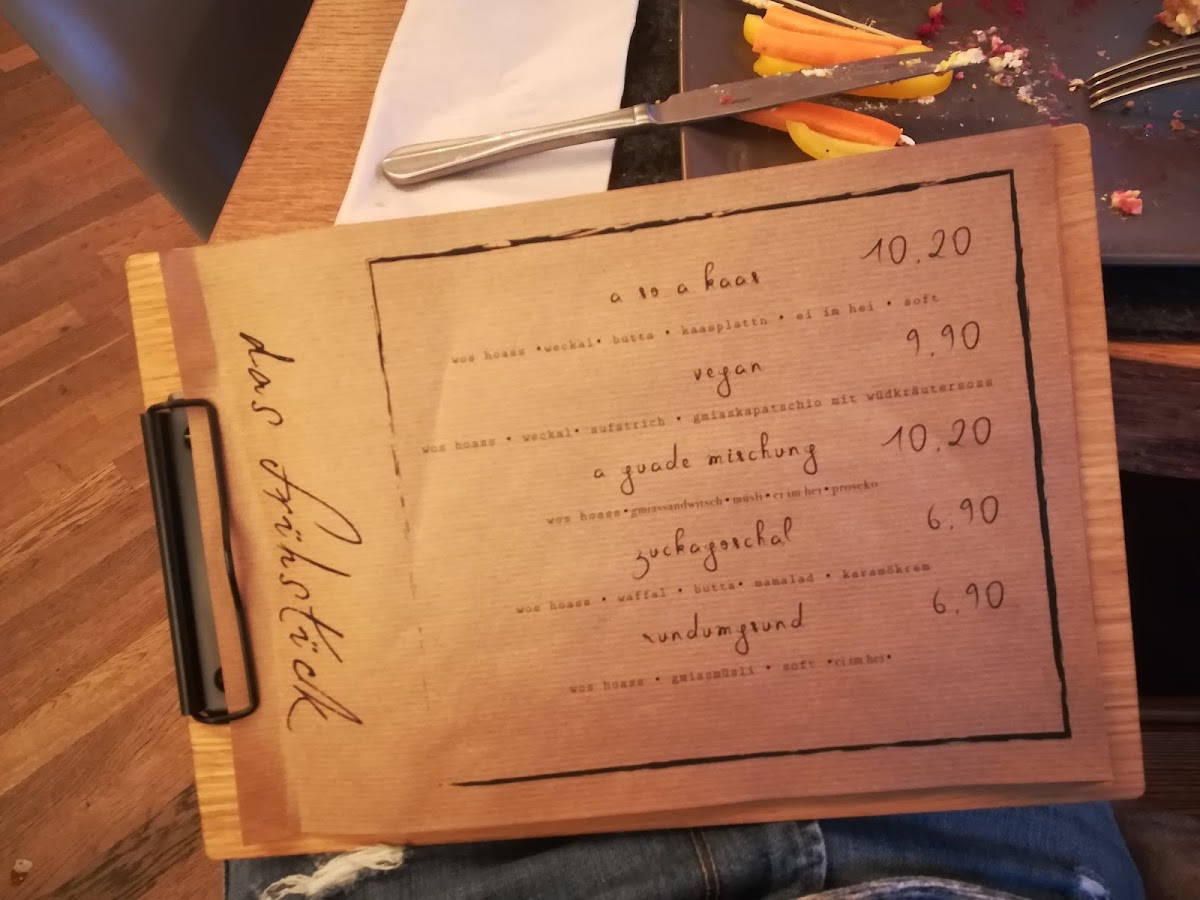 das frühstück
a so a kaas 10.20
wos hoass • weckal • butta • kaasplattn • ei im hei • soft
vegan 9.90
wos hoass • weckal • aufstrich • gmiaskapatschio mit wüdkräutersoss
a guade mischung 10.20
wos hoass • gmiassandwitsch • müsli • ei im hei • proseko
zuckagoschal 6.90
wos hoass • waffal • butta • mamalad • karamökrem
rundumgsund 6.90
wos hoass • gmiasmüsli • soft • ei im hei •